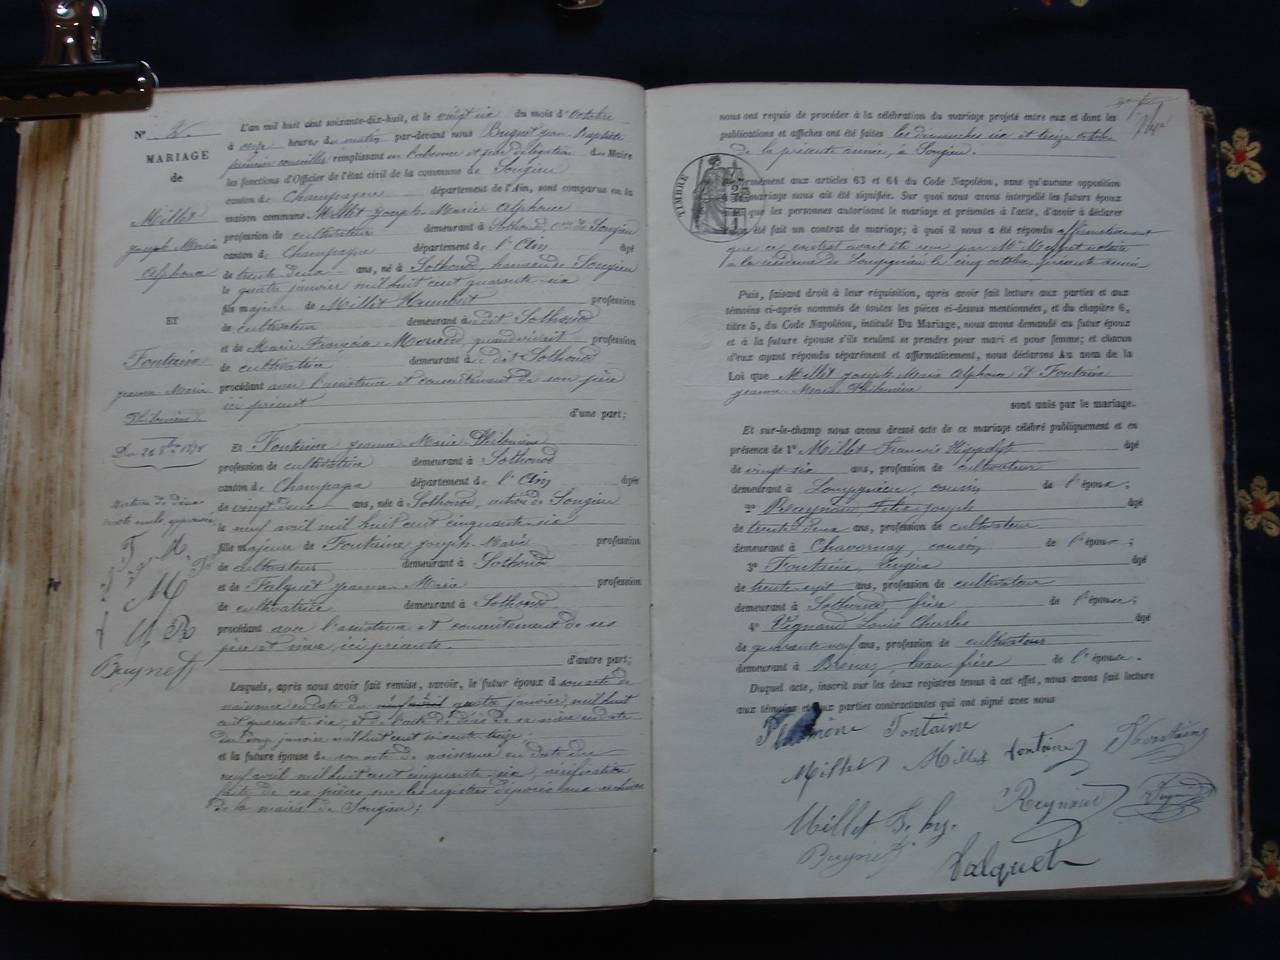 N° 
MARIAGE
de
Millet
Joseph Marie
Alphonse
ET
Fontaine
Jeanne Marie
Philomène
Du 26 8bre 1878
Buynet
L'an mil huit cent soixante-dix-huit, et le vingt six du mois d'Octobre
à onze heures du matin par-devant nous Buynet Jean Baptiste
premier conseiller remplissant par délégation de Maire
les fonctions d'Officier de l'état civil de la commune de Songieu
canton de Champagne département de l'Ain, sont comparus en la
maison commune Millet Joseph Marie Alphonse
profession de cultivateur demeurant à Sothonod, Cne de Songieu
canton de Champagne département de l'Ain âgé
de trente deux ans, né à Sothonod, hameau de Songieu
le quatre janvier mil huit cent quarante-six
fils majeur de Millet Humbert profession
de cultivateur demeurant à dit Sothonod
et de Marie Françoise profession
de cultivatrice demeurant à dit Sothonod
procédant avec l'assistance et consentement de son père
ici présent
d'une part;
Et Fontaine Jeanne Marie Philomène
profession de cultivatrice demeurant à Sothonod
canton de Champagne département de l'Ain âgée
de vingt deux ans, née à Sothonod, section de Songieu
le neuf avril mil huit cent cinquante-six
fille majeure de Fontaine Joseph Marie profession
de cultivateur demeurant à Sothonod
et de Falquet Jeanne Marie profession
de cultivatrice demeurant à Sothonod
procédant avec l'assistance et consentement de ses
père et mère, ici présents.
d'autre part;
Lesquels, après nous avoir fait remise, savoir, le futur époux de son acte de
naissance en date du quatre janvier, mil huit
cent quarante-six, et de l'acte de décès de sa mère en date
du onze janvier mil huit cent soixante treize
et la future épouse de son acte de naissance en date du
neuf avril mil huit cent cinquante-six, vérification
faite de ces pièces sur les registres déposés aux archives
de la mairie de Songieu;
nous ont requis de procéder à la célébration du mariage projeté entre eux et dont les
publications et affiches ont été faites les dimanches six et treize octobre
de la présente année, à Songieu.
TIMBRE
Conformément aux articles 63 et 64 du Code Napoléon, sans qu'aucune opposition
à ce mariage nous ait été signifiée. Sur quoi nous avons interpellé les futurs époux
ainsi que les personnes autorisant le mariage et présentes à l'acte, d'avoir à déclarer
s'il a été fait un contrat de mariage; à quoi il nous a été répondu affirmativement
que ce contrat avait été reçu par Me notaire
à la résidence de le cinq octobre présente année
Puis, faisant droit à leur réquisition, après avoir fait lecture aux parties et aux
témoins ci-après nommés de toutes les pièces ci-dessus mentionnées, et du chapitre 6,
titre 5, du Code Napoléon, intitulé Du Mariage, nous avons demandé au futur époux
et à la future épouse s'ils veulent se prendre pour mari et pour femme; et chacun
d'eux ayant répondu séparément et affirmativement, nous déclarons au nom de la
Loi que Millet Joseph Marie Alphonse et Fontaine
Jeanne Marie Philomène
sont unis par le mariage.
Et sur-le-champ nous avons dressé acte de ce mariage célébré publiquement et en
présence de 1° Millet François Hippolyte âgé
de vingt-six ans, profession de cultivateur
demeurant à cousin de l'époux;
2° Reynaud Félix Joseph âgé
de trente deux ans, profession de cultivateur
demeurant à Chavornay, cousin de l'époux;
3° Fontaine, Eugène âgé
de trente sept ans, profession de cultivateur
demeurant à Sothonod, frère de l'épouse;
4° Vignand Louis Charles âgé
de quarante neuf ans, profession de cultivateur
demeurant à Brenaz, beau-frère de l'épouse.
Duquel acte, inscrit sur les deux registres tenus à cet effet, nous avons fait lecture
aux témoins et aux parties contractantes qui ont signé avec nous
Philomène Fontaine
Millet Millet Fontaine Fontaine
Reynaud
Millet F. hy.
Buynet Falquet